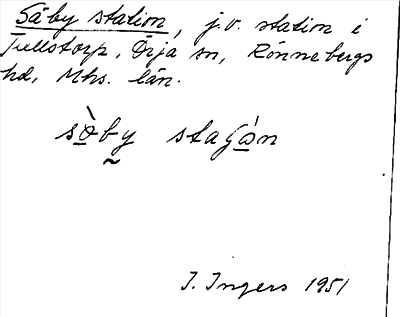 Säby station, j.v. station i
Tullstorp, Örja sn, Rönnebergs
hd, Mhs. län.
sàby staʃán
I. Ingers 1951